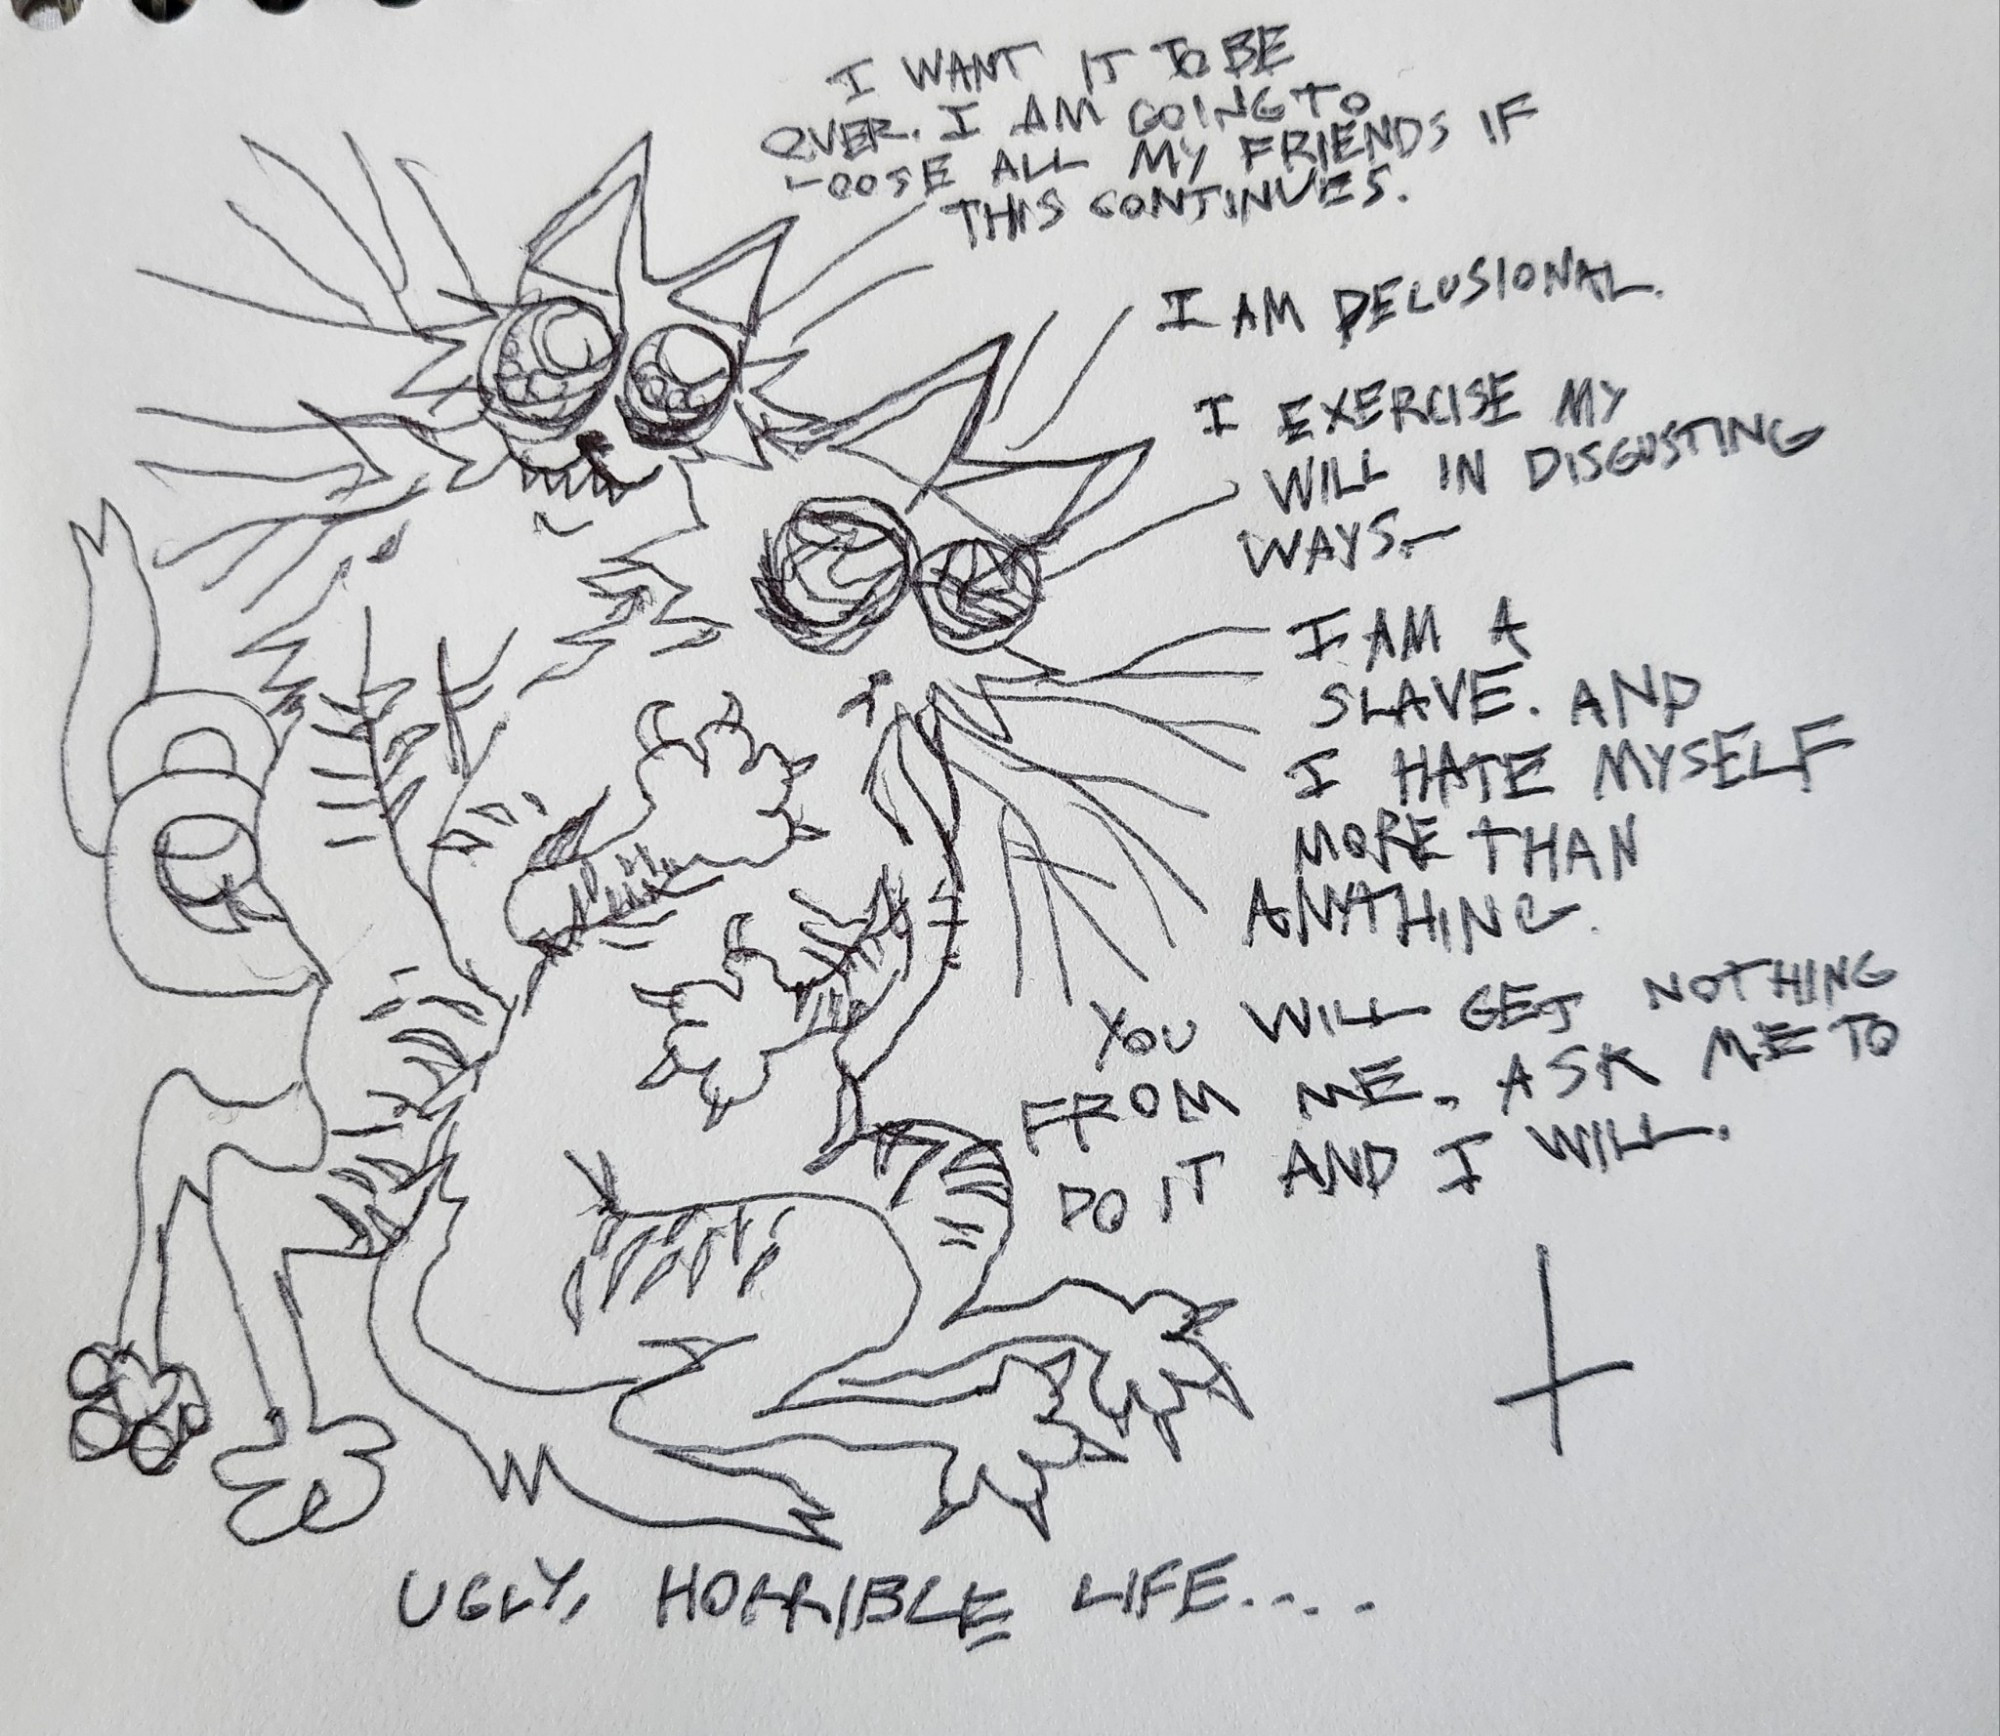 I WANT IT TO BE
OVER. I AM GOING TO
LOOSE ALL MY FRIENDS IF
THIS CONTINUES.
I AM DELUSIONAL.
I EXERCISE MY
WILL IN DISGUSTING
WAYS.—
I AM A
SLAVE. AND
I HATE MYSELF
MORE THAN
ANYTHING.
YOU WILL GET NOTHING
FROM ME. ASK ME TO
DO IT AND I WILL.
UGLY, HORRIBLE LIFE....